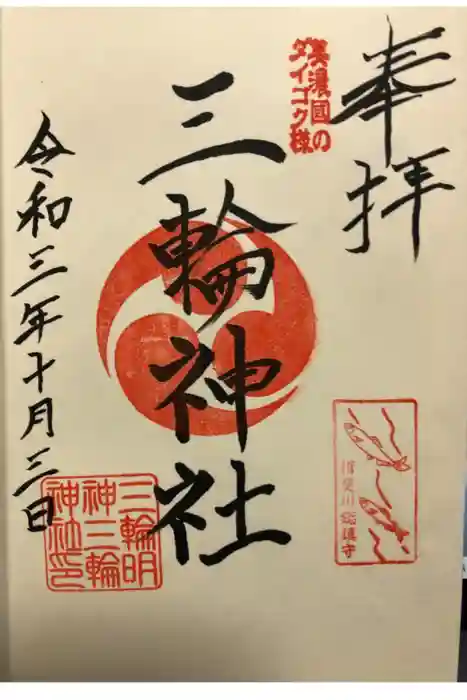 奉拝
美濃國の
ダイゴク様
揖斐川 総鎮守
三輪神社
三輪明
神三輪
神社印
令和三年十月三日